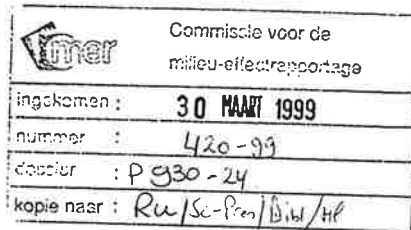 mer
Commissie voor de
milieu-effectrapportage
ingekomen : 30 MAART 1999
nummer : 420-99
dossier : P 930-24
kopie naar : Ru/Sc-Pres/Bibl/HP